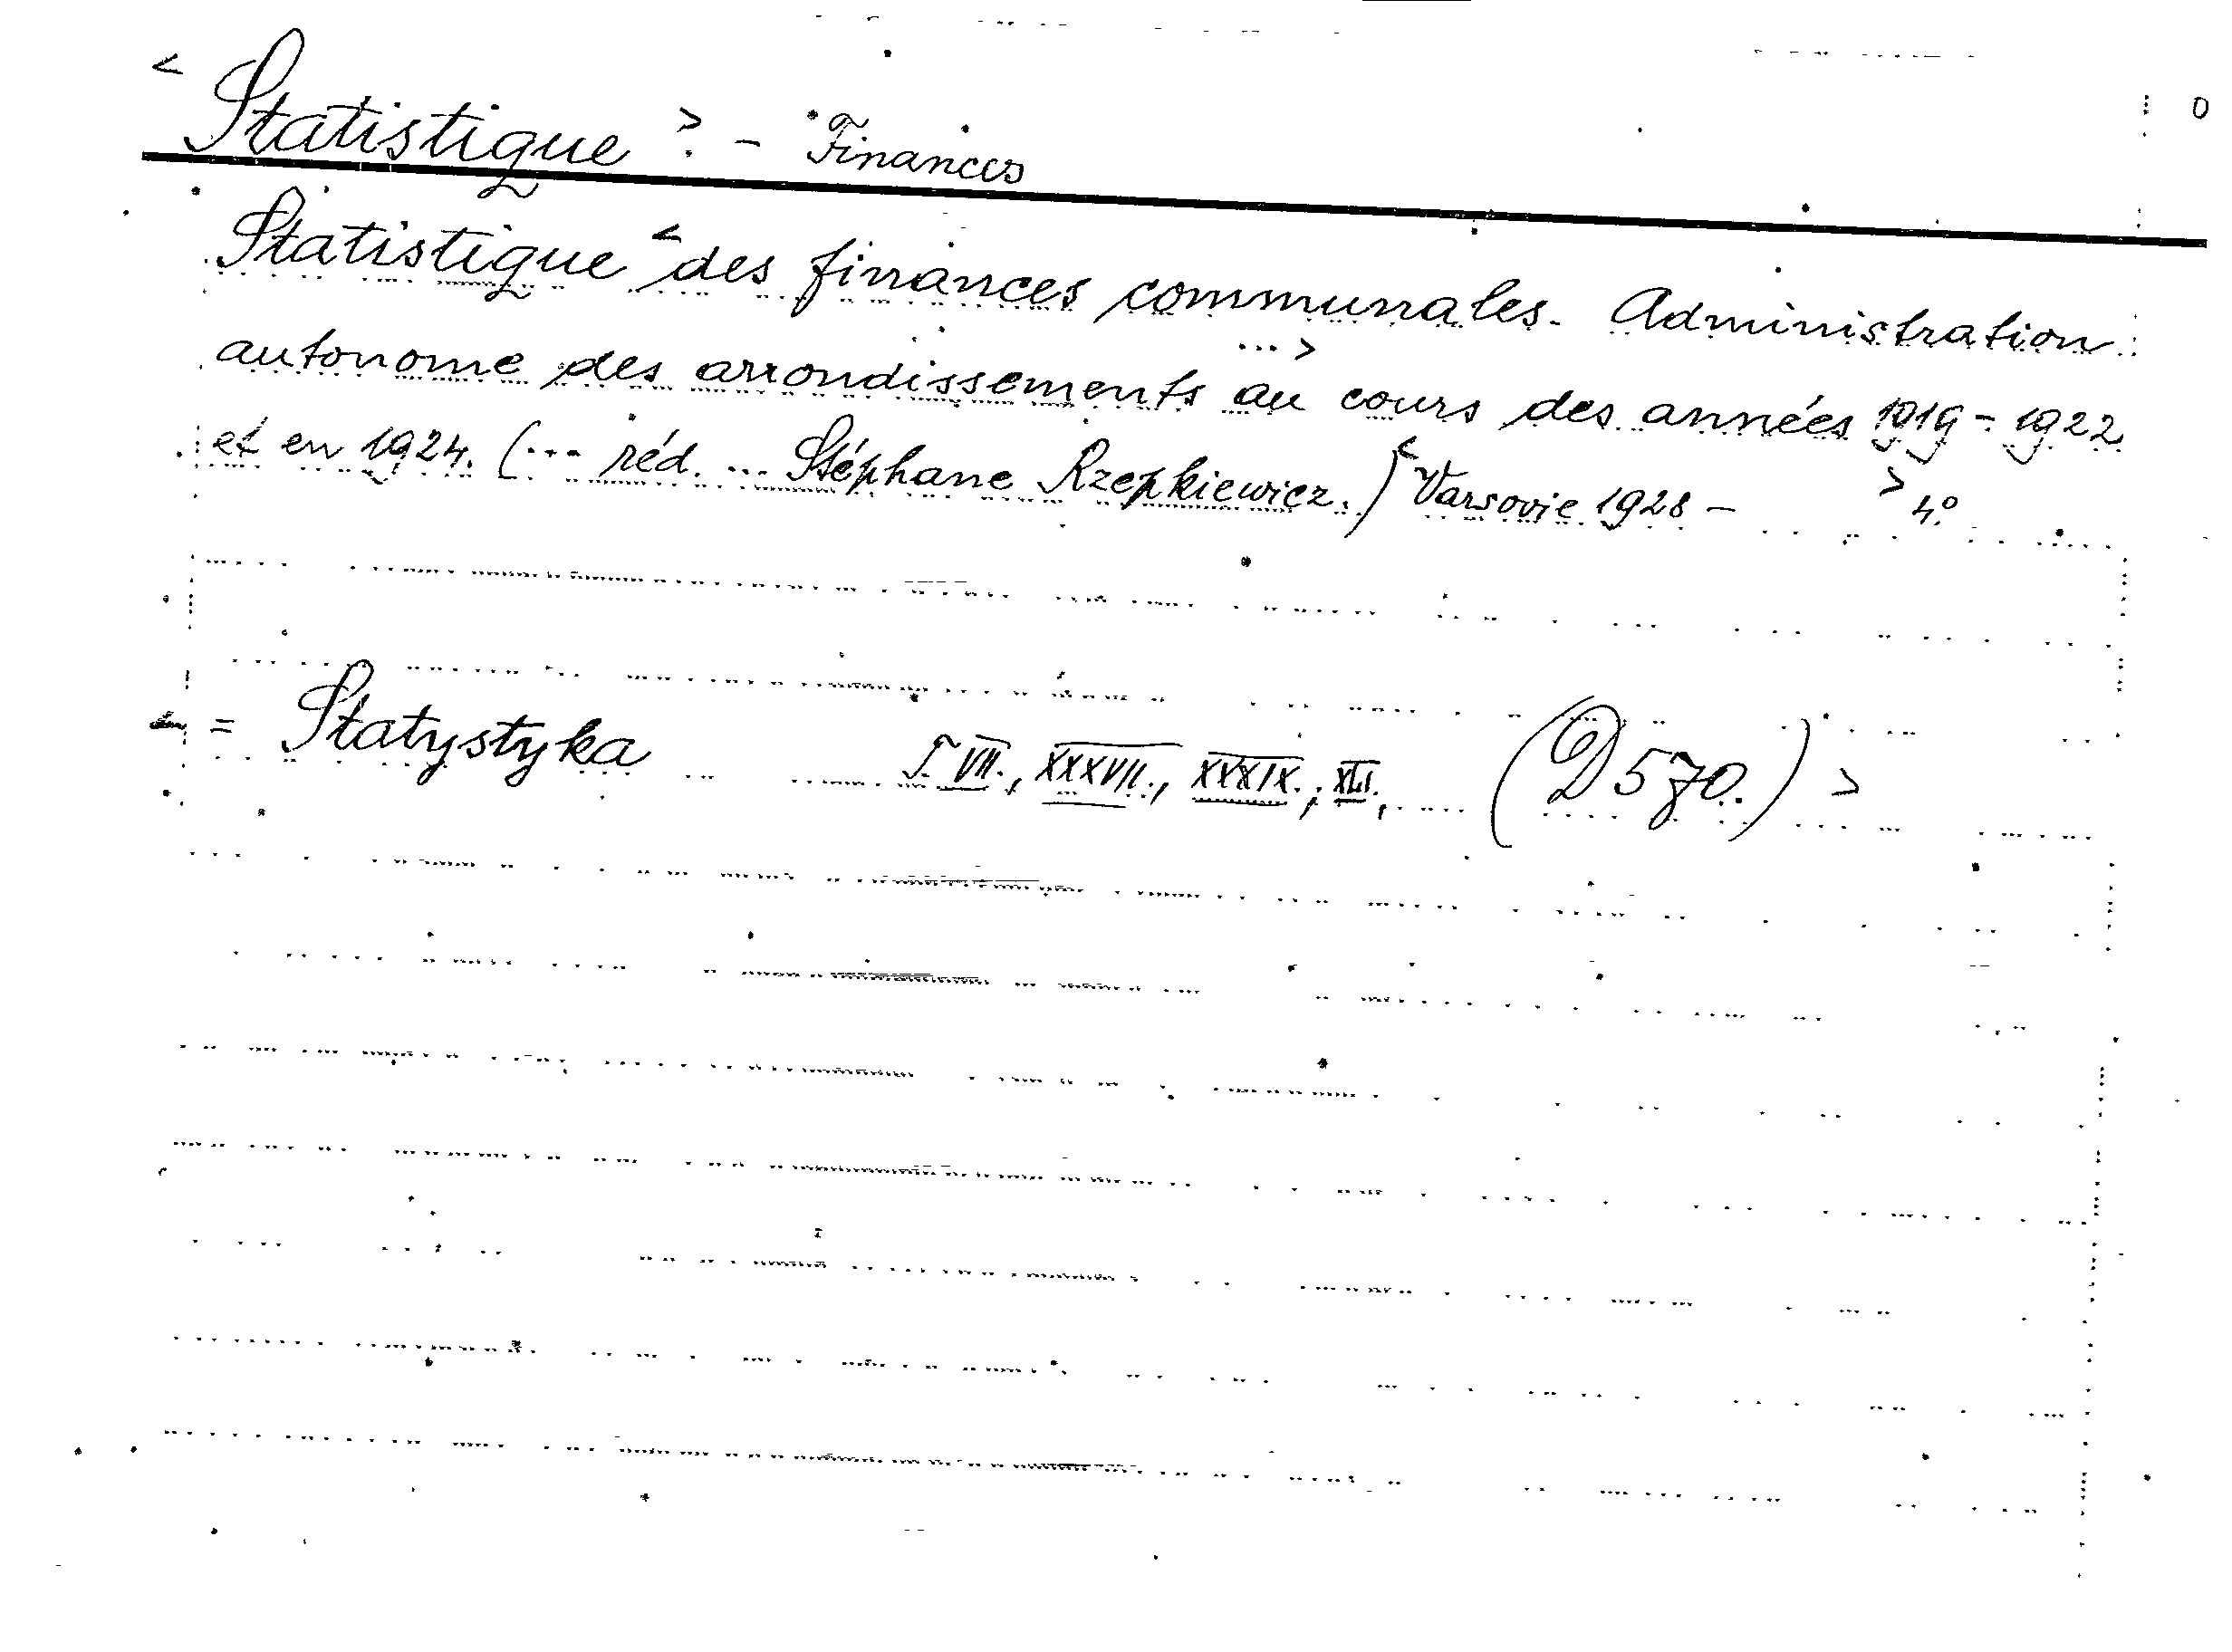 < Statistique >. - Finances
Statistique < des finances communales. Administration
autonome des arrondissements ...> au cours des années 1919 - 1922
et en 1924. (... réd. ... Stéphane Rzepkiewicz.) < Varsovie 1928 - > 4.°
< = Statystyka T. VII., XXXVII., XXXIX.; XLI., (D 570.) >